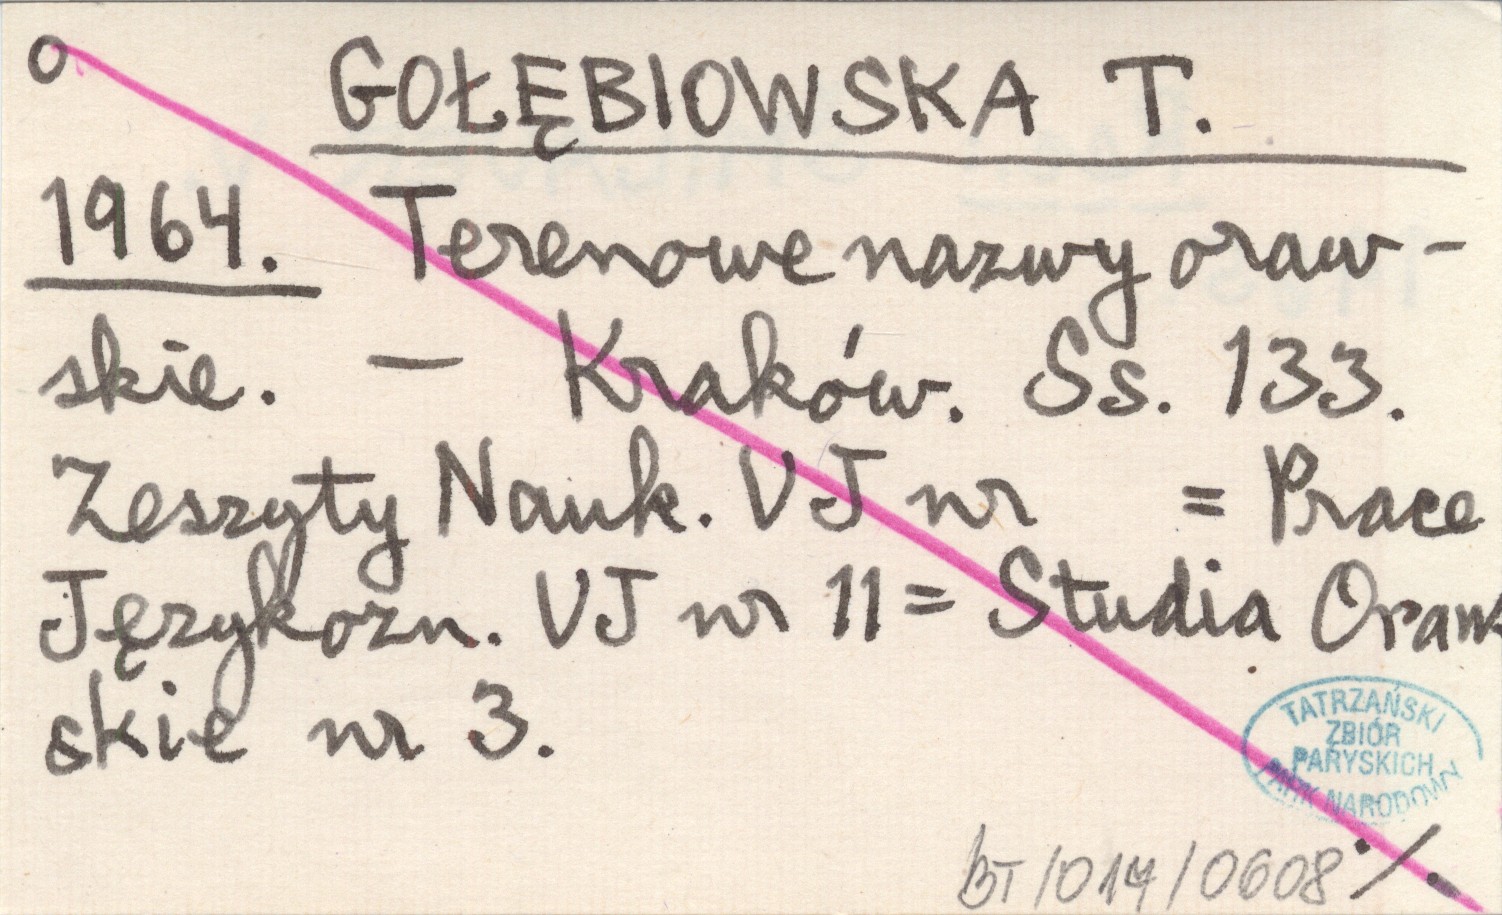 o GOŁĘBIOWSKA T.
1964. Terenowe nazwy oraw-
skie. — Kraków. Ss. 133.
Zeszyty Nauk. UJ nr = Prace
Językozn. UJ nr 11 = Studia Oraw
skie nr 3.
TATRZAŃSKI
ZBIÓR
PARYSKICH
PARK NARODOWY
BT/017/0608 ·/.